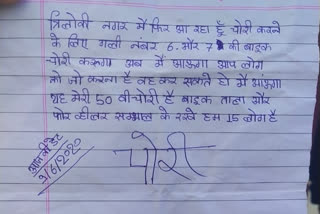 त्रिलोकी नगर में फिर आ रहा हूँ चोरी करने
के लिए गली नंबर 6. और 7 की बाइक
चोरी करूगा अब में आऊगा आप लोग
को जो करना है वह कर सकते हो में आऊंगा
यह मेरी 50 वी चोरी है बाइक ताला और
फोर व्हीलर सम्भाल के रखे हम 15 लोग है
आज की डेट
3/6/2020
चोरी